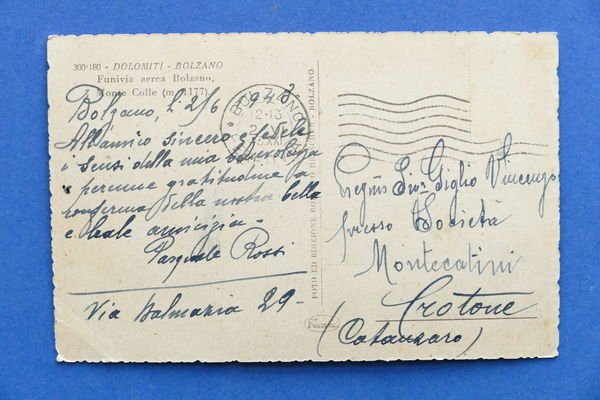 300-180 - DOLOMITI - BOLZANO
Funivia aerea Bolzano,
Monte Colle (m. 1177)
Bolzano, li 2/6 1943
All'amico sincero e fedele
i sensi della mia benevolenza
e perenne gratitudine a
conferma della nostra bella
e leale amicizia.
Pasquale Rossi
Via Dalmazia 29-
BOLZANO
12-13
XXI
FOTO ED EDIZIONE
BOLZANO
Pregmo Sigr Giglio Vincenzo
presso Società
Montecatini
Crotone
(Catanzaro)